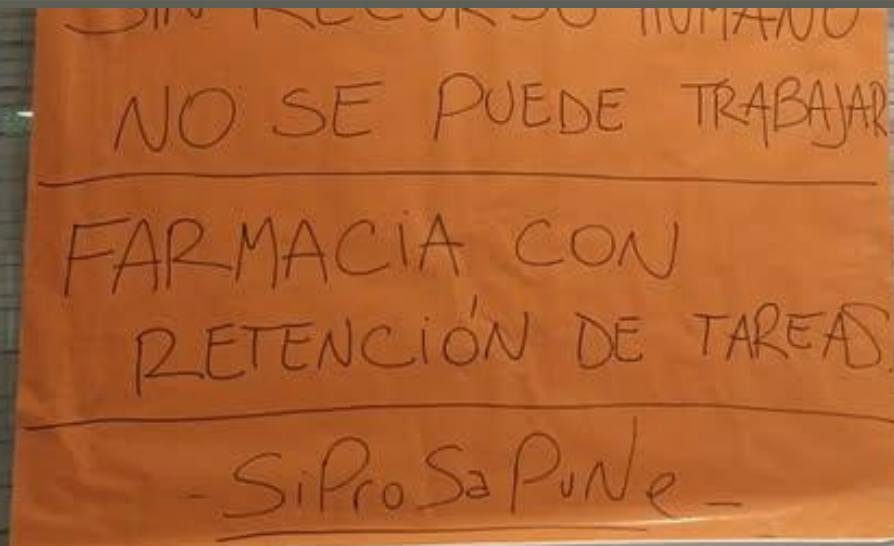 SIN RECURSO HUMANO
NO SE PUEDE TRABAJAR
FARMACiA CON
RETENCiÓN DE TAREAS.
- SiProSaPuNe -